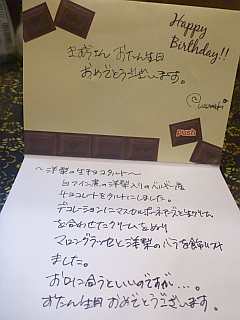 Happy
Birthday!!
おたん生日
おめでとうございます。
push
〜洋梨の生チョコタルト〜
白ワイン煮の洋梨入りのベルギー産
チョコレートをタルトにしました。
デコレーションにマスカルポーネチーズと生クリーム
を合わせたクリームをぬり
マロングラッセと洋梨のバラを飾りつけ
ました。
お口に合うといいのですが…。
おたん生日 おめでとうございます。